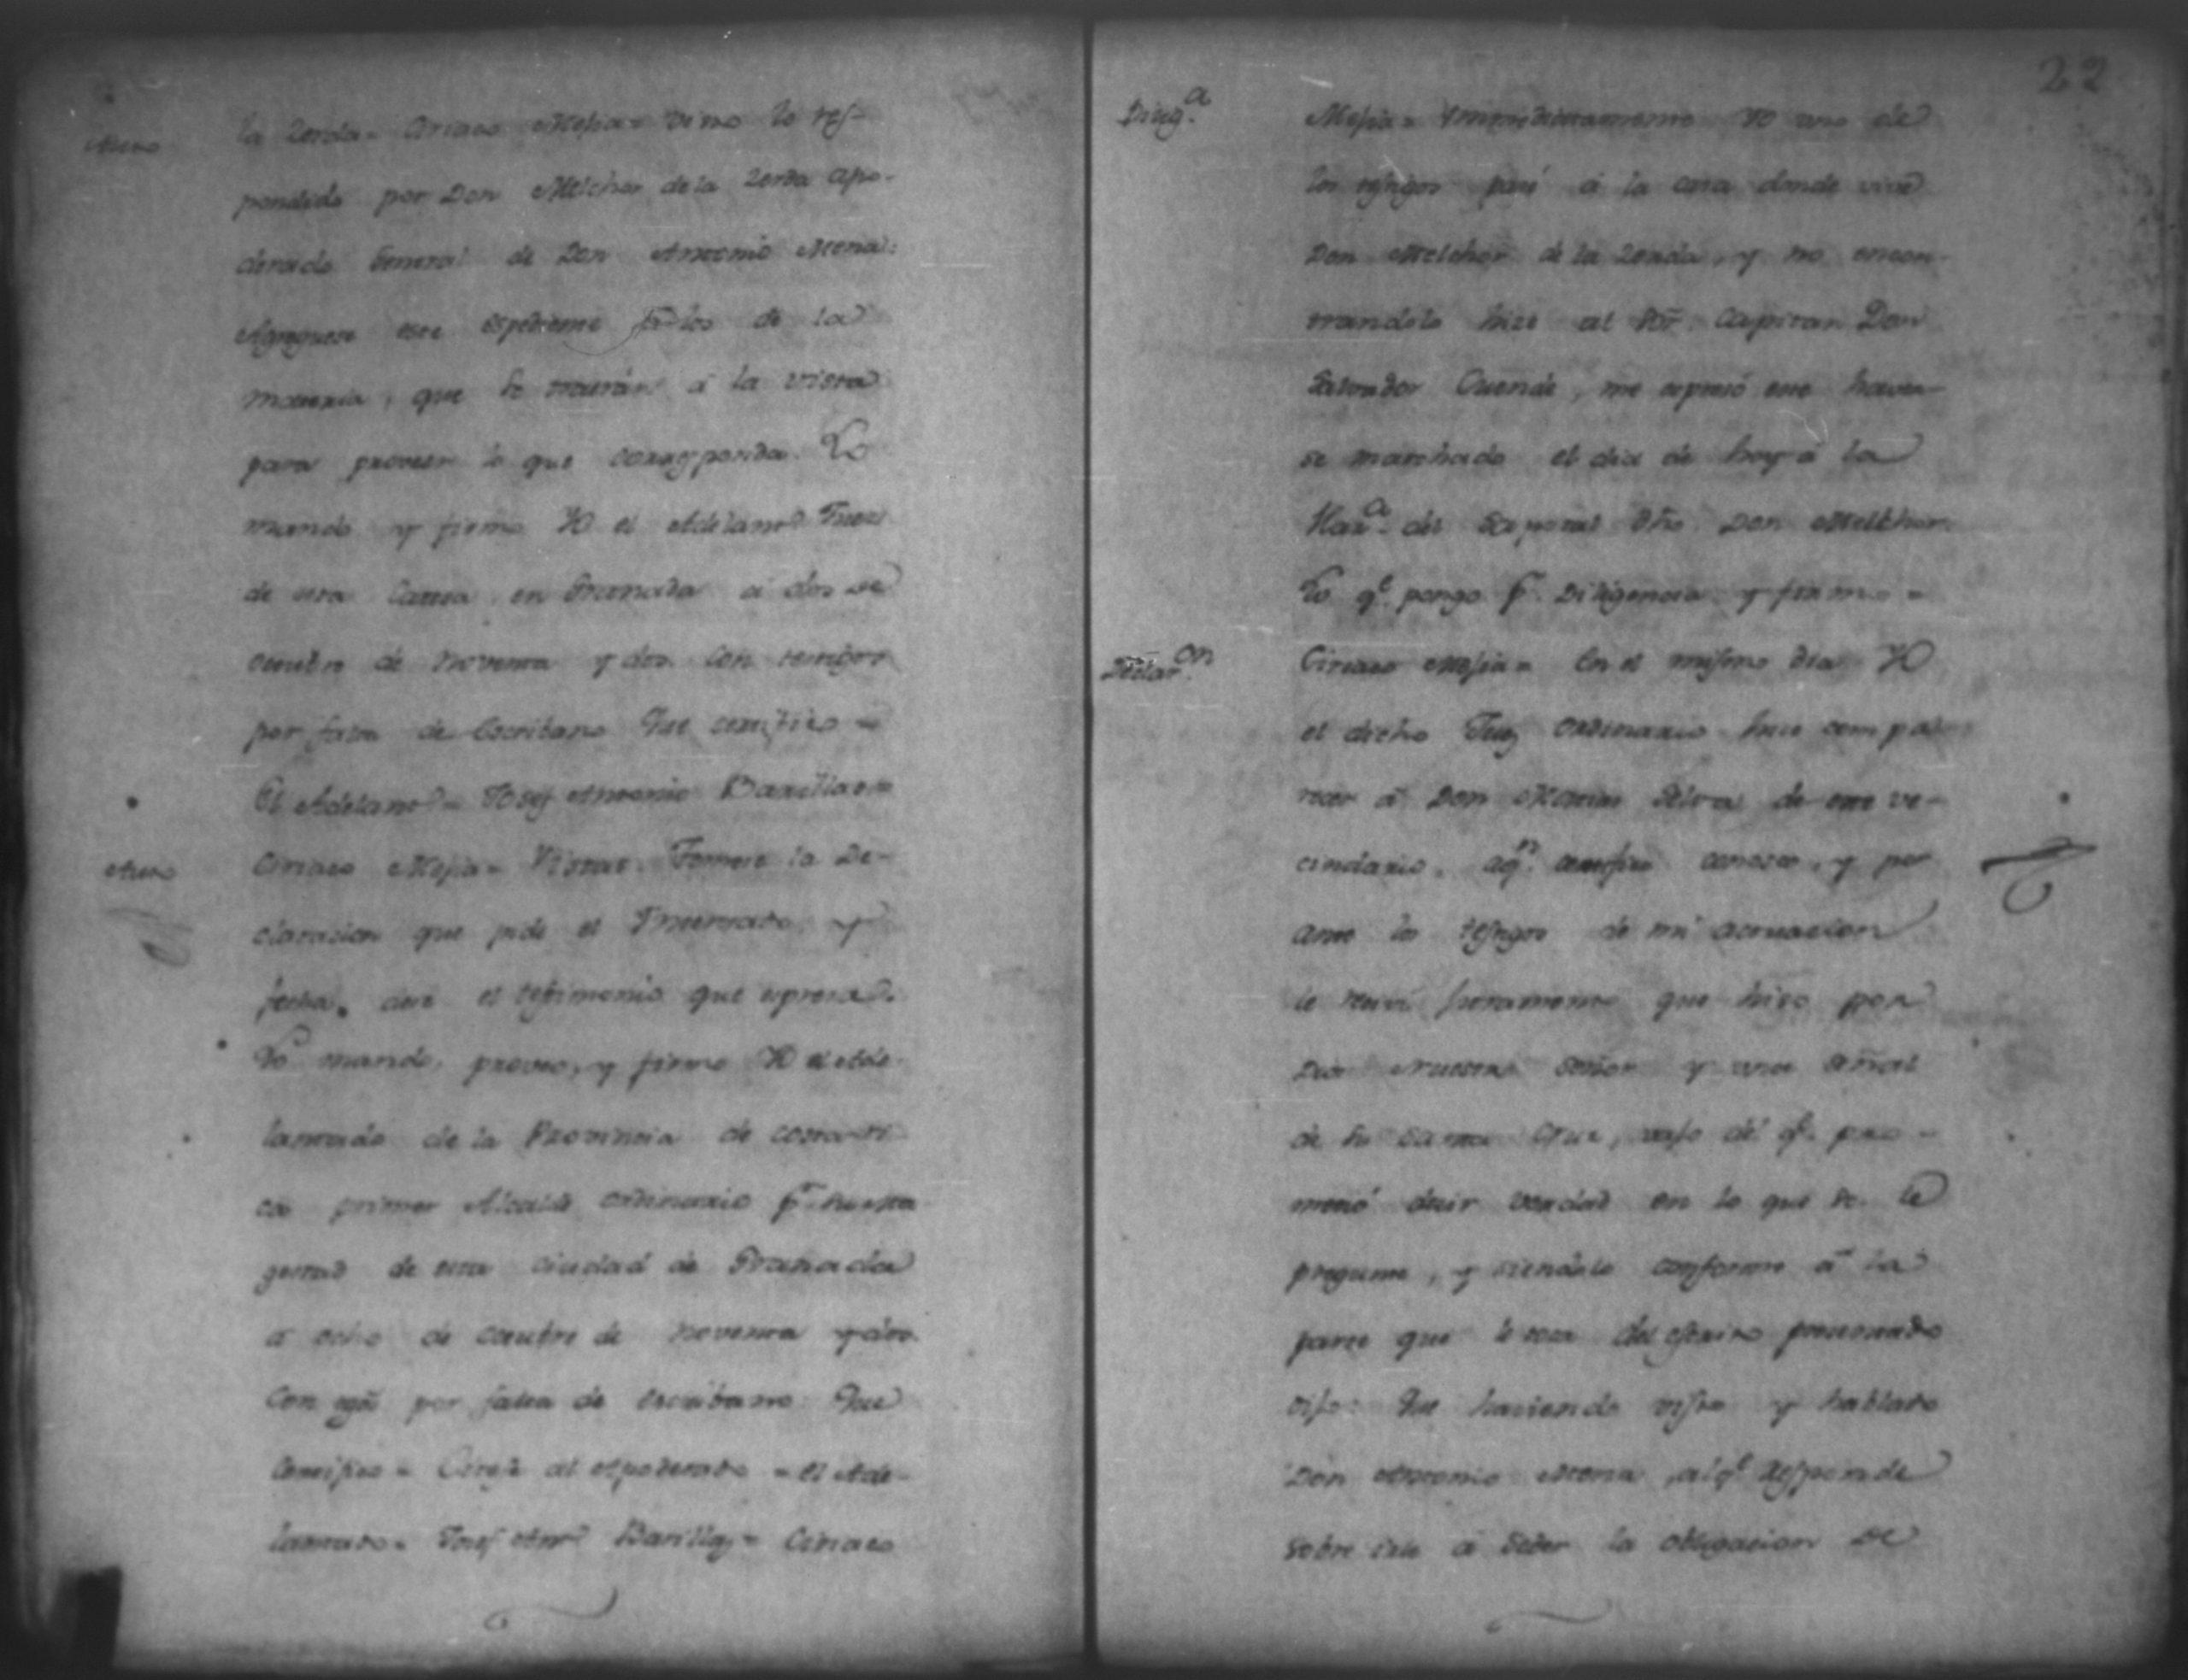 Auto
la Zerda = Ciriaco Mejia = Visto lo res-
pondido por Don Melchor de la Zerda apo-
derado General de Don Antonio Mena:
Agreguese este espediente a los de la
materia, que se traerán a la vista
para proveer lo que corresponda. Lo
mando y firmo Yo el Adelant.º Juez
de esta Causa en Granada a dos de
octubre de noventa y dos. Con testigos
por falta de Escribano Que certifico =
El Adelant.º = Josef Antonio Barillas =
Auto
Ciriaco Mejia = Vistos. Tomese la De-
claracion que pide el Interesado, y
fecha, dese el testimonio que espresa.
Lo mando, proveo, y firmo Yo el Ade-
lantado de la Provincia de costa-ri-
ca primer Alcalde ordinario p.r su Ma-
gestad de esta ciudad de Granada
a ocho de octubre de noventa y dos.
Con tgõs por falta de escribano Que
Certifico = al Apoderado = El Ade-
lantado = Josef Ant.º Barillas = Ciriaco
22
Dilig.a
Mejia = Immediatamente Yo uno de
los testigos pasé a la casa donde vive
Don Melchor de la Zerda, y no encon-
trandolo hize al Sõr. Capitan Don
Salvador Cuende, me espresó este haver-
se marchado el dia de hoy a la
Haz.da del dho Don Melchor
Lo q.e pongo p.r Diligencia y firmo =
Declar.on
Ciriaco Mejia = En el mismo dia Yo
el dicho Juez ordinario hice compa-
recer á Don Matias Selva de este ve-
cindario, aq.n certifico conosco, y por
ante los testigos de mi actuacion
le recivi juramento que hizo por
Dios Nuestro Señor y una señal
de su Santa Cruz, vajo del q.e pro-
metió decir verdad en lo que se le
pregunte, y siendolo conforme á la
parte que le toca del escrito presentado
dijo: Que haviendo visto y hablado
Don Antonio Mena, al q.e responde
sobre a seder la obligacion de